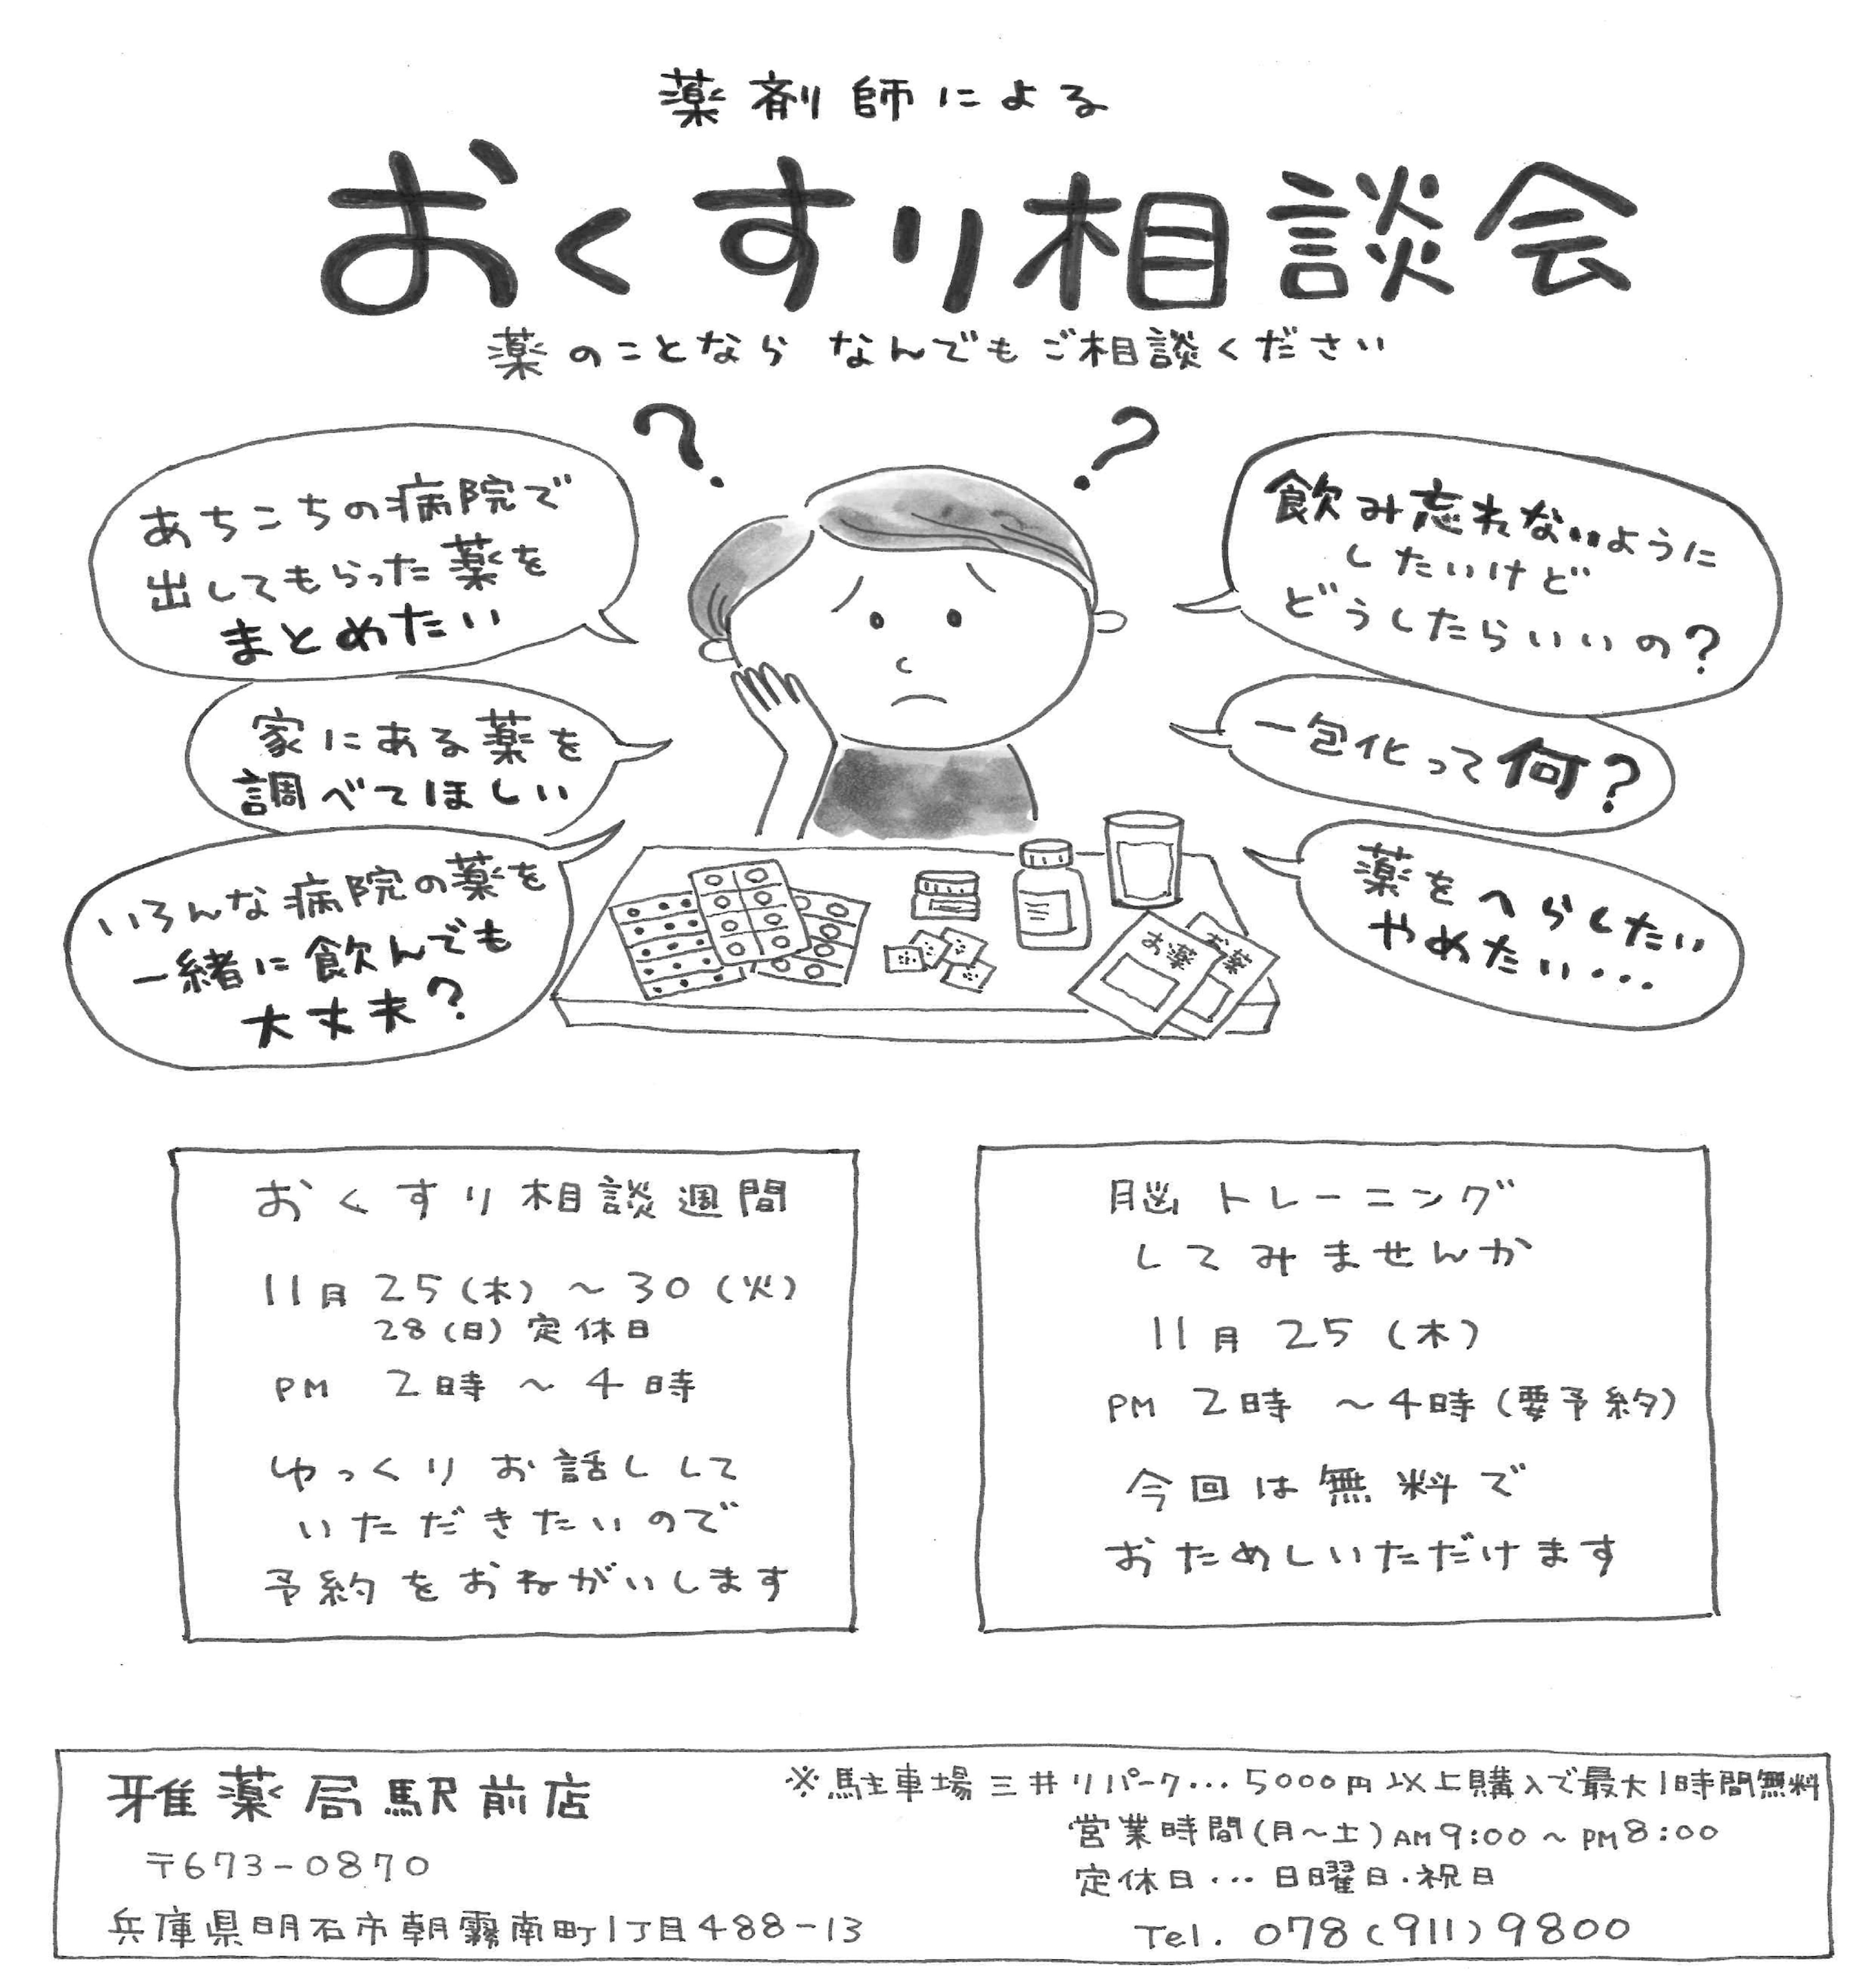 薬剤師による
おくすり相談会
薬のことなら なんでもご相談ください
? ?
あちこちの病院で
出してもらった薬を
まとめたい
家にある薬を
調べてほしい
いろんな病院の薬を
一緒に飲んでも
大丈夫?
飲み忘れないように
したいけど
どうしたらいいの?
一包化って何?
薬をへらしたい
やめたい…
お薬
お薬
おくすり相談週間
11月 25(木)~30(火)
28(日)定休日
PM 2時~4時
ゆっくりお話しして
いただきたいので
予約をおねがいします
脳トレーニング
してみませんか
11月 25(木)
PM 2時 ~4時(要予約)
今回は無料で
おためしいただけます
雅薬局駅前店
〒673-0870
兵庫県明石市朝霧南町1丁目488-13
※駐車場 三井リパーク…5000円以上購入で最大1時間無料
営業時間(月~土)AM9:00~PM8:00
定休日…日曜日・祝日
Tel. 078(911)9800